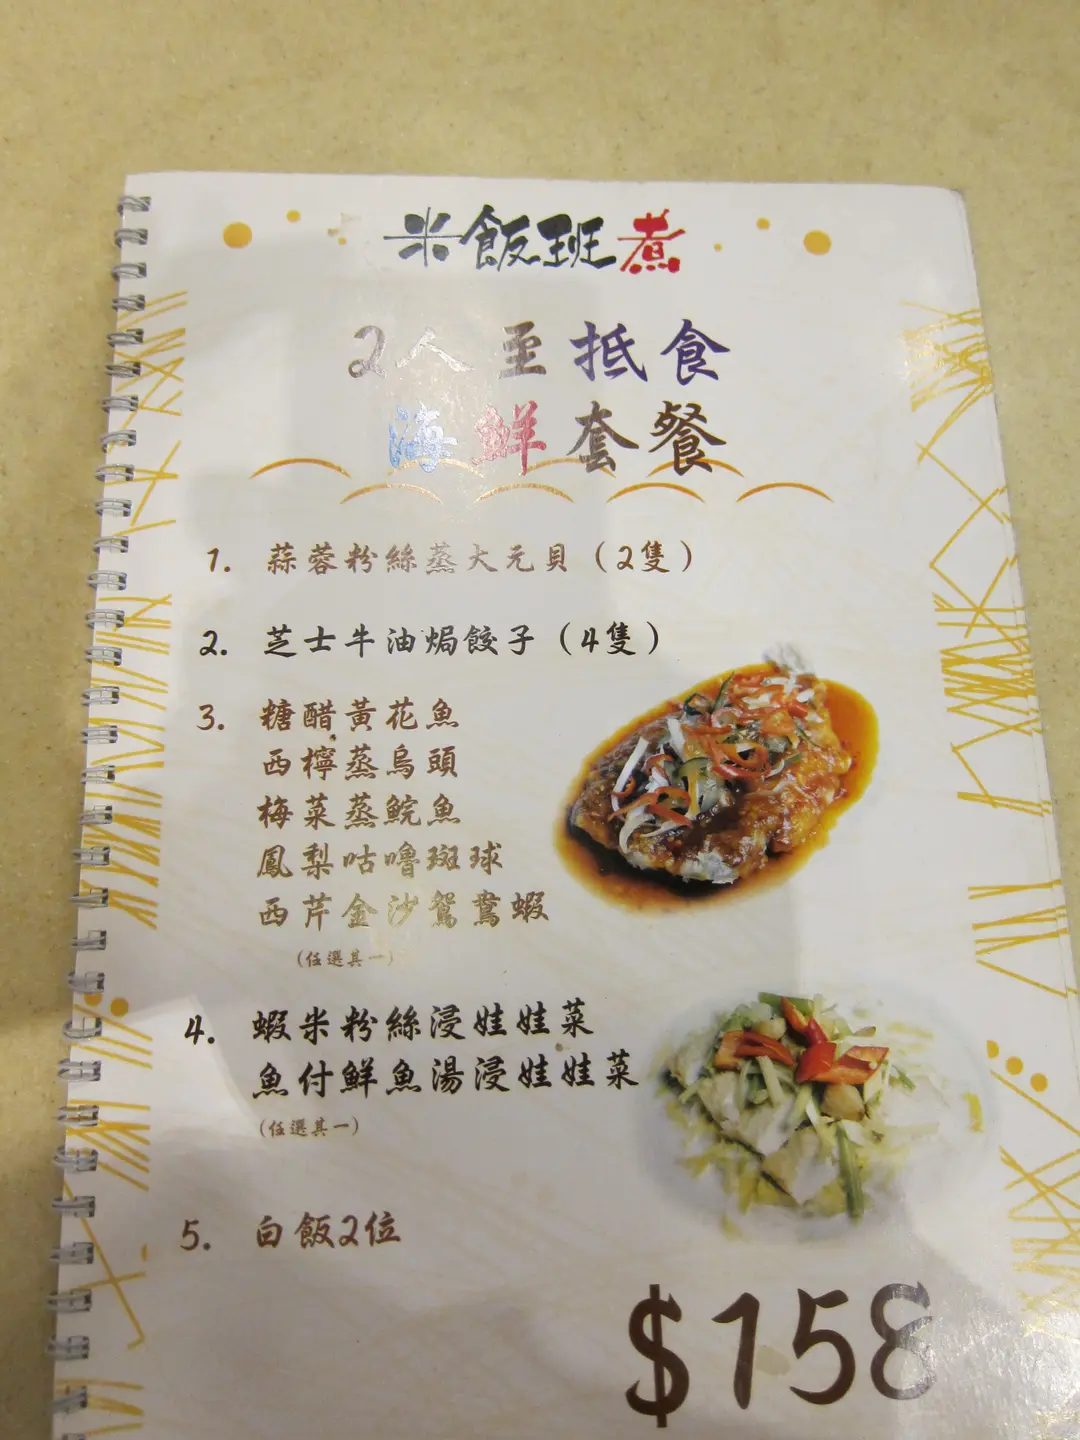 米飯班煮
2人至抵食
海鮮套餐
1. 蒜蓉粉絲蒸大元貝（2隻）
2. 芝士牛油焗餃子（4隻）
3. 糖醋黃花魚
西檸蒸烏頭
梅菜蒸鯇魚
鳳梨咕嚕斑球
西芹金沙鴛鴦蝦
（任選其一）
4. 蝦米粉絲浸娃娃菜
魚付鮮魚湯浸娃娃菜
（任選其一）
5. 白飯2位
$158